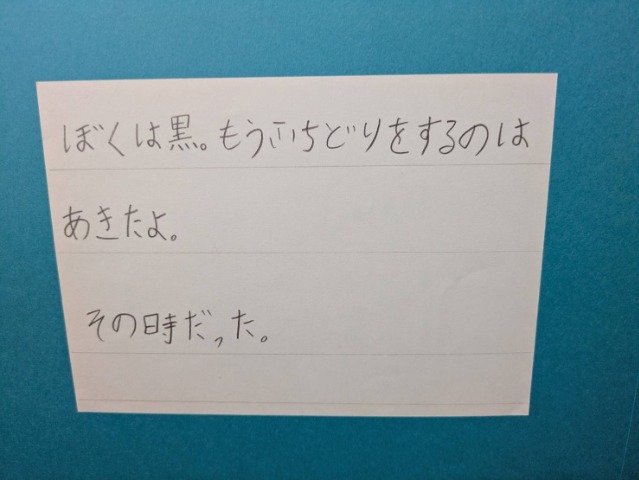 ぼくは黒。もうふちどりをするのは
あきたよ。
その時だった。